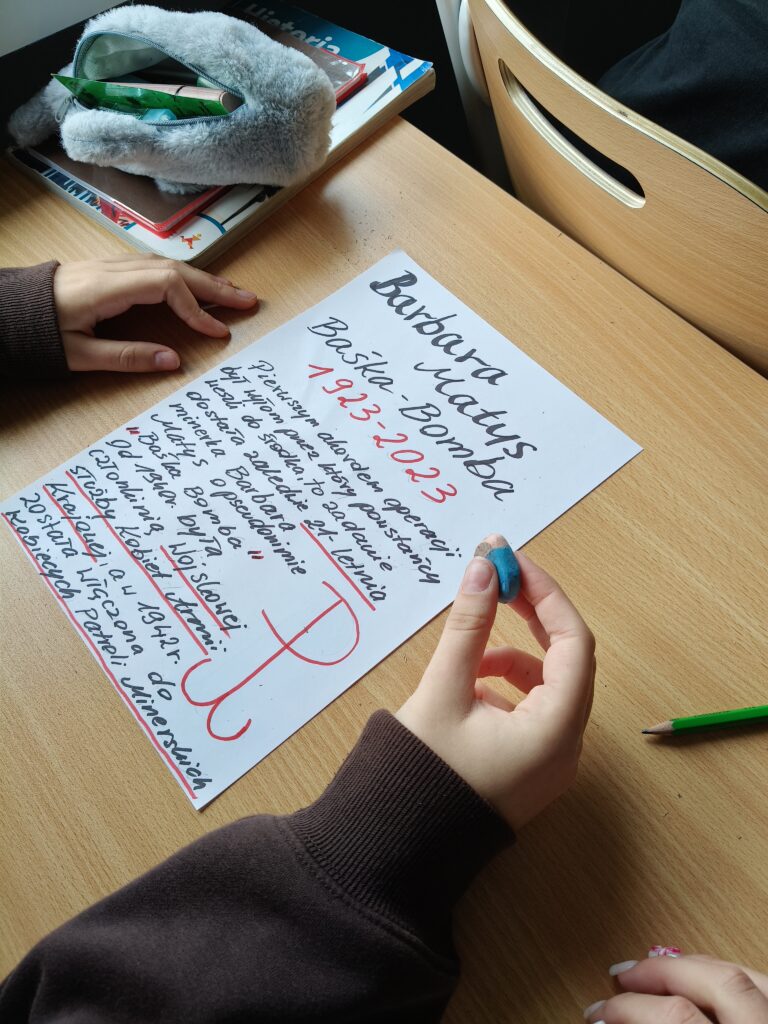 Historia
Barbara
Matys
Baśka-Bomba
1923-2023
Pierwszym akordem operacji
był wyłom przez który powstańcy
weszli do środka, to zadanie
dostała zaledwie 21-letnia
minerka Barbara
Matys o pseudonimie
"Baśka Bomba"
Od 1940r. była
członkinią Wojskowej
służby Kobiet Armii
Krajowej, a w 1942r.
została włączona do
Kobiecych Patroli Minerskich